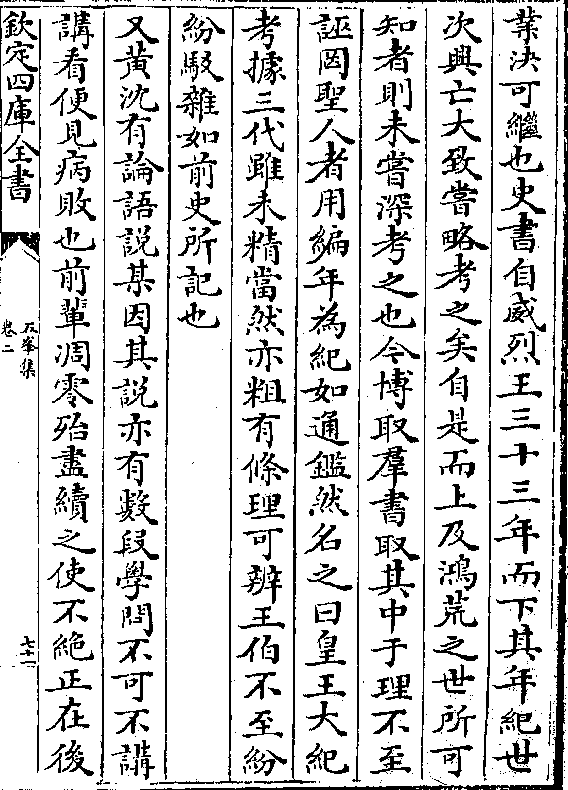 業決可繼也史書自威烈王三十三年而下其年紀世
次興亡大致嘗略考之矣自是而上及鴻荒之世所可
知者則未嘗深考之也今博取羣書取其中于理不至
誣罔聖人者用編年為紀如通鑑然名之曰皇王大紀
考據三代雖未精當然亦粗有條理可辨王伯不至紛
紛駁雜如前史所記也
又黄沈有論語說某因其説亦有數段學問不可不講
講看便見病敗也前輩凋零殆盡續之使不絶正在後
欽定四庫全書
五峯集
卷二